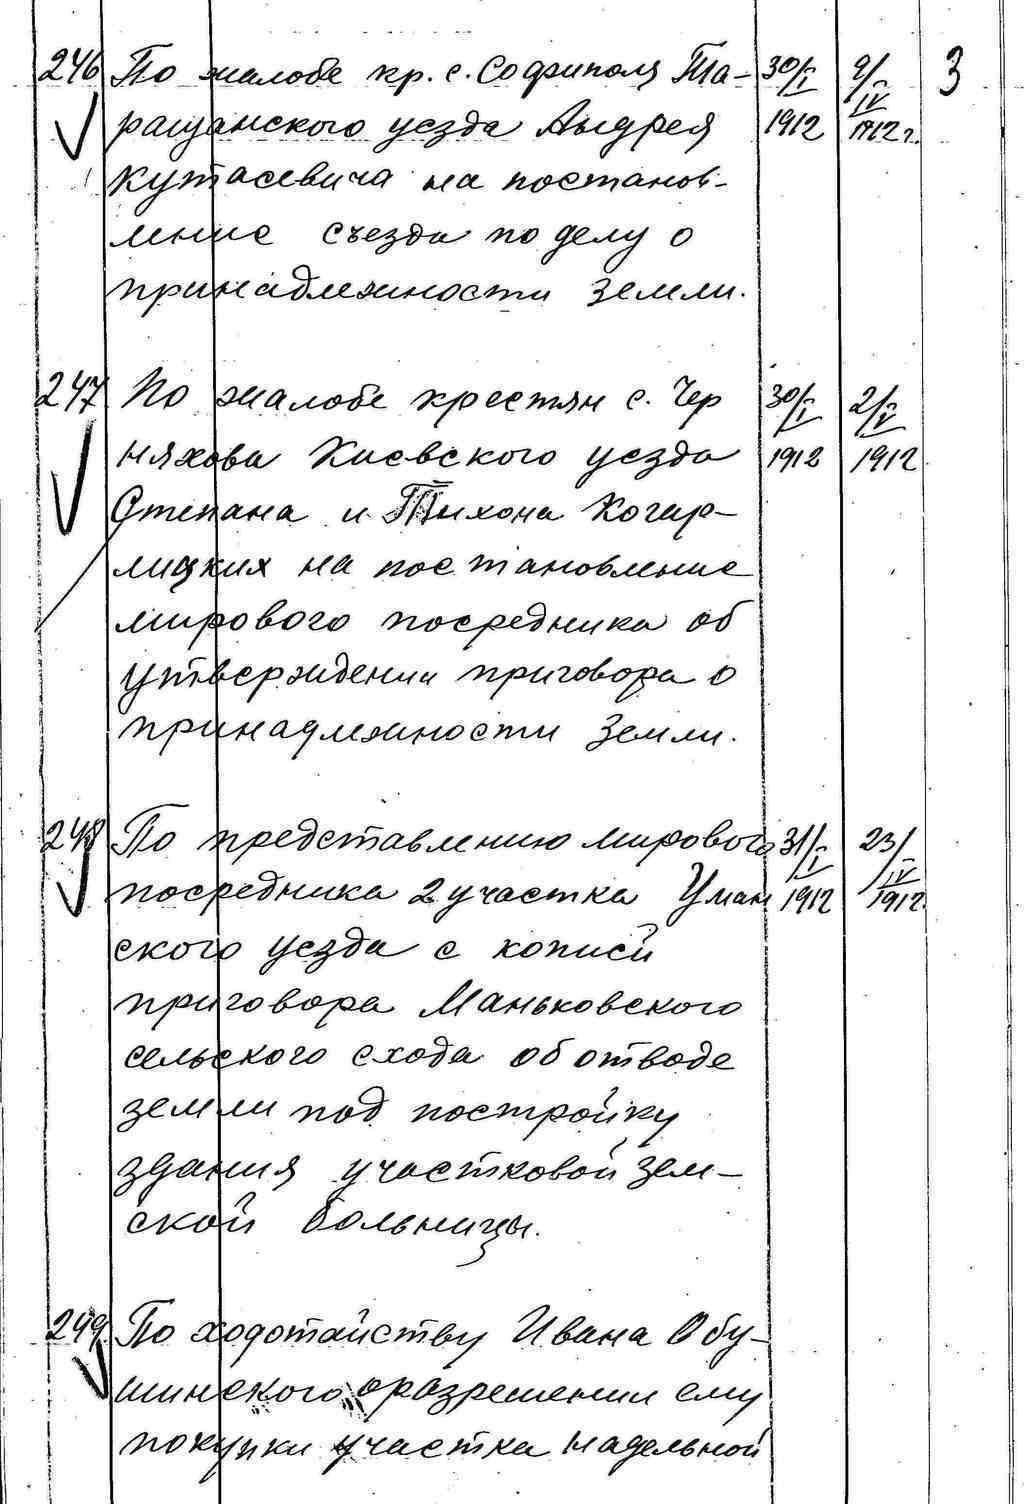 246 По жалобе кр. с. Софиполя Та- 30/I 9/IV 3
ращанского уезда Андрея 1912 1912 г.
Кутасевича на постанов-
ление съезда по делу о
принадлежности земли.
247 По жалобе крестян с. Чер 30/I 2/V
няхова Киевского уезда 1912 1912
Степана и Тихона Кагар-
лицких на постановление
мирового посредника об
утверждении приговора о
принадлежности земли.
248 По представлению мирового 31/I 23/IV
посредника 2 участка Уман 1912 1912
ского уезда с копией
приговора Маньковского
сельского схода об отводе
земли под постройку
здания участковой зем-
ской больницы.
249 По ходотайству Ивана Обу-
шинского о разрешении ему
покупки участка надельной